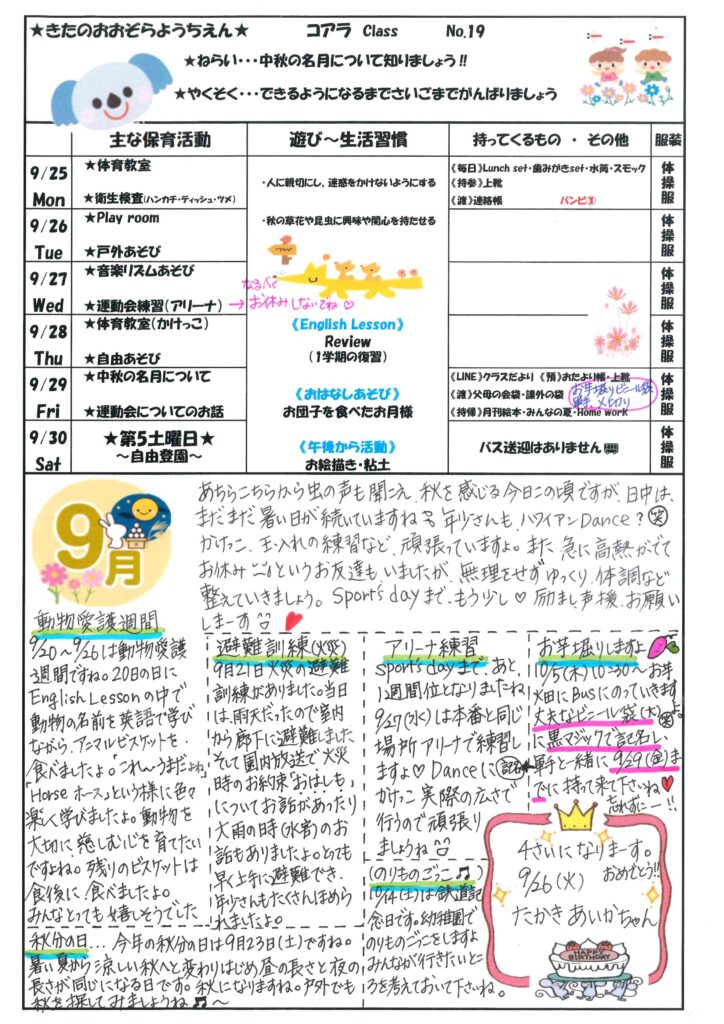 ★きたのおおぞらようちえん★ コアラ Class No.19
★ねらい・・・中秋の名月について知りましょう!!
★やくそく・・・できるようになるまでさいごまでがんばりましょう
主な保育活動 遊び～生活習慣 持ってくるもの ・ その他 服装
9/25 Mon
★体育教室
★衛生検査(ハンカチ・ティッシュ・ツメ)
・人に親切にし、迷惑をかけないようにする
《毎日》Lunch set・歯みがきset・水筒・スモック
《持参》上靴
《渡》連絡帳 バンビ
体操服
9/26 Tue
★Play room
★戸外あそび
・秋の草花や昆虫に興味や関心を持たせる
体操服
9/27 Wed
★音楽リズムあそび
★運動会練習(アリーナ)
→ なるべく
お休みしないでね♡
体操服
9/28 Thu
★体育教室(かけっこ)
★自由あそび
《English Lesson》
Review
(1学期の復習)
体操服
9/29 Fri
★中秋の名月について
★運動会についてのお話
《おはなしあそび》
お団子を食べたお月様
《LINE》クラスだより 《預》おたより帳・上靴
《渡》父母の会袋・課外の袋
《持帰》月刊絵本・みんなの夏・Home work
お芋堀りビニール袋
軍手、〆切り
体操服
9/30 Sat
★第5土曜日★
～自由登園～
《午後から活動》
お絵描き・粘土
バス送迎はありません
体操服
9月
あちらこちらから虫の声も聞こえ、秋を感じる今日この頃ですが、日中は、
まだまだ暑い日が続いていますね。年少さんも、ハワイアンDance?(笑)
かけっこ、玉入れの練習など、頑張っていますよ。また、急に高熱がでて
お休み…というお友達もいましたが、無理をせずゆっくり、体調など
整えていきましょう。Sport's dayまで、もう少し♡励まし声援、お願い
しまーす
動物愛護週間
9/20～9/26は動物愛護
週間ですね。20日の日に
English Lessonの中で
動物の名前を英語で学び
ながら、アニマルビスケットを、
食べましたよ。「これ、うまだよね、
「Horse ホース」という様に色々
楽しく学びましたよ。動物を
大切に、慈しむ心を育てたい
ですね。残りのビスケットは
食後に、食べましたよ。
みんなとっても嬉しそうでした
避難訓練(火災)
9月21日火災の避難
訓練がありました。当日
は、雨天だったので室内
から廊下に避難しました
そして園内放送で火災
時のお約束「おはしも」
についてお話があったり
大雨の時(水害)のお
話もありましたよ。とても
早く上手に避難でき、
年少さんもたくさんほめら
れましたよ。
アリーナ練習
Sport's dayまで、あと、
1週間位となりましたね
9/27(水)は本番と同じ
場所アリーナで練習し
ますよ♡Danceに
かけっこ実際の広さで
行うので頑張り
ましょうね
(のりものごっこ♫)
10/14(土)は鉄道記
念日です。幼稚園で
のりものごっこをしますよ
みんなが行きたいとこ
ろを考えておいて下さいね。
お芋堀りしますよ
10/5(木)10:30～お芋
畑にBusにのっていきますよ。
丈夫なビニール袋(大)
に黒マジックで記名し、
軍手と一緒に、9/29(金)ま
でに持って来て下さいね
忘れずにー!!
4さいになりまーす。
9/26(火) おめでとう!!
たかきあいかちゃん
HAPPY BIRTHDAY
秋分の日… 今年の秋分の日は9月23日(土)ですね。
暑い夏から涼しい秋へと変わりはじめ昼の長さと夜の
長さが同じになる日です。秋になりますね。戸外でも
秋を探してみましょうね♫～